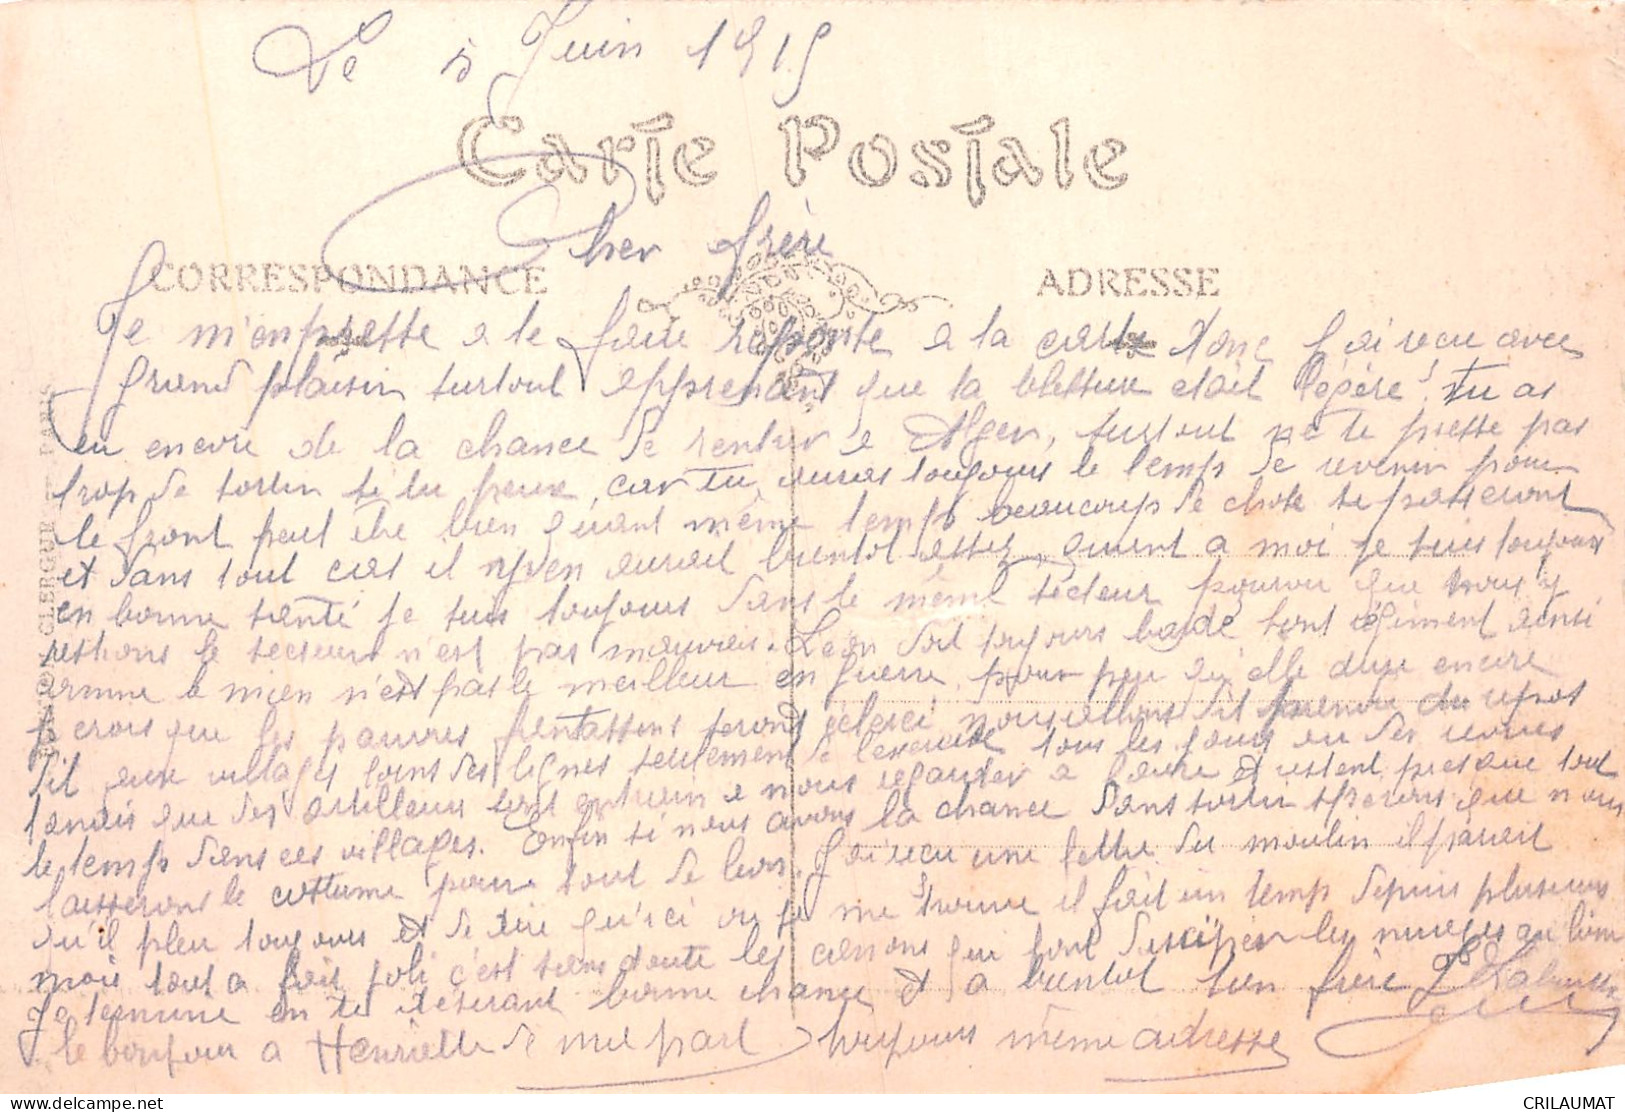 Le 5 Juin 1915
Carte Postale
Cher frère
CORRESPONDANCE
ADRESSE
Je m'empresse a te faire reponse a ta carte donc j'ai recu avec
grand plaisir surtout apprenant que ta blessure etait légère! tu as
eu encore de la chance de rentrer a Alger, surtout ne te presse pas
trop de sortir si tu peux, car tu auras toujours le temps de revenir pour
le front peut être bien quant même temps beaucoup de chose se passeront
et sans tout cas il y en aurait bientot assez, quant a moi je suis toujours
en bonne santé je suis toujours dans le même secteur pourvu que nous y
restions le secteur n'est pas mauvais. Leon doit toujours son régiment ainsi
comme le mien n'est pas le meilleur en guerre, pour peu qu'elle dure encore
je crois que les pauvres fantassins seront nous allons dit prendre du repos
dit aux villages loins des lignes seulement de l'exercice tous les jours ou des revues
tandis que des artilleurs sont entrain a nous regarder a faire et restent presque tout
le temps dans ces villages. Enfin si nous avons la chance d'en sortir esperons que nous
laisserons le costume pour tout de bon. J'ai recu une lettre du moulin il parait
qu'il pleu toujours et de dire qu'ici ou je me trouve il fait un temps depuis plusieurs
mois tout a fait joli c'est sans doute les canons qui font dissiper les nuages au loin
Je termine en te desirant bonne chance et a bientot ton frère
le bonjour a Henriette de ma part toujours même adresse
EDITION CLERGUE PARIS
CRILAUMAT